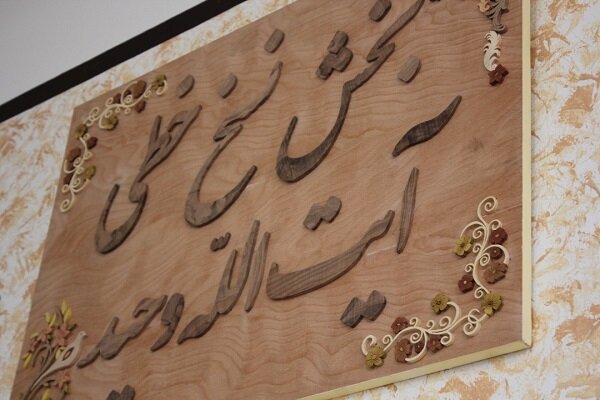 بخش نسخ خطی
آیت الله وحید